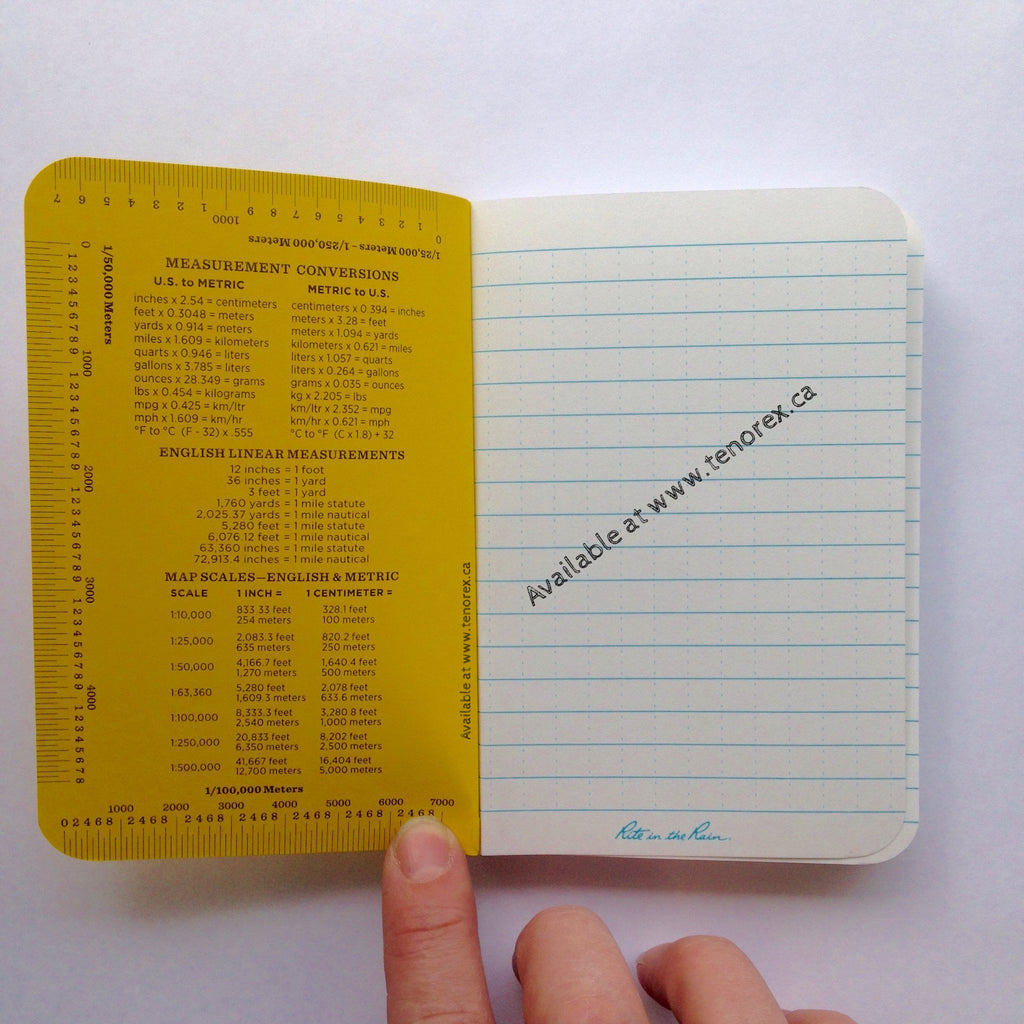 7 6 5 4 3 2 1 1000 9 8 7 6 5 4 3 2 1 0
1/25,000 Meters – 1/250,000 Meters
0 1 2 3 4 5 6 7 8 9 1000 1 2 3 4 5 6 7 8 9 2000 1 2 3 4 5 6 7 8 9 3000 1 2 3 4 5 6 7 8 9 4000 1 2 3 4 5 6 7 8
1/50,000 Meters
MEASUREMENT CONVERSIONS
U.S. to METRIC
inches x 2.54 = centimeters
feet x 0.3048 = meters
yards x 0.914 = meters
miles x 1.609 = kilometers
quarts x 0.946 = liters
gallons x 3.785 = liters
ounces x 28.349 = grams
lbs x 0.454 = kilograms
mpg x 0.425 = km/ltr
mph x 1.609 = km/hr
°F to °C (F - 32) x .555
METRIC to U.S.
centimeters x 0.394 = inches
meters x 3.28 = feet
meters x 1.094 = yards
kilometers x 0.621 = miles
liters x 1.057 = quarts
liters x 0.264 = gallons
grams x 0.035 = ounces
kg x 2.205 = lbs
km/ltr x 2.352 = mpg
km/hr x 0.621 = mph
°C to °F (C x 1.8) + 32
ENGLISH LINEAR MEASUREMENTS
12 inches = 1 foot
36 inches = 1 yard
3 feet = 1 yard
1,760 yards = 1 mile statute
2,025.37 yards = 1 mile nautical
5,280 feet = 1 mile statute
6,076.12 feet = 1 mile nautical
63,360 inches = 1 mile statute
72,913.4 inches = 1 mile nautical
MAP SCALES—ENGLISH & METRIC
SCALE 1 INCH = 1 CENTIMETER =
1:10,000 833.33 feet 328.1 feet
254 meters 100 meters
1:25,000 2,083.3 feet 820.2 feet
635 meters 250 meters
1:50,000 4,166.7 feet 1,640.4 feet
1,270 meters 500 meters
1:63,360 5,280 feet 2,078 feet
1,609.3 meters 633.6 meters
1:100,000 8,333.3 feet 3,280.8 feet
2,540 meters 1,000 meters
1:250,000 20,833 feet 8,202 feet
6,350 meters 2,500 meters
1:500,000 41,667 feet 16,404 feet
12,700 meters 5,000 meters
1/100,000 Meters
1000 2000 3000 4000 5000 6000 7000
0 2 4 6 8 2 4 6 8 2 4 6 8 2 4 6 8 2 4 6 8 2 4 6 8 2 4 6 8
Available at www.tenorex.ca
Available at www.tenorex.ca
Rite in the Rain.